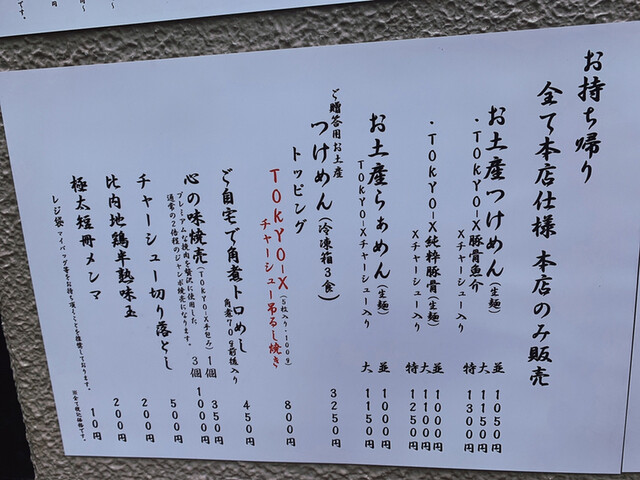 お持ち帰り
全て本店仕様 本店のみ販売
お土産つけめん(生麺)
・TOKYO-X豚骨魚介
Xチャーシュー入り
並 1050円
大 1150円
特 1300円
・TOKYO-X純粋豚骨(生麺)
Xチャーシュー入り
並 1000円
大 1100円
特 1250円
お土産らぁめん(生麺)
TOKYO-Xチャーシュー入り
並 1000円
大 1150円
ご贈答用お土産
つけめん(冷凍箱3食) 3250円
トッピング
TOKYO-X(5枚入り・100g)
チャーシュー吊るし焼き 800円
ご自宅で角煮トロめし
角煮70g前後入り 450円
心の味焼売(TOKYO-X手包み) 1個 350円
プレミアムな挽肉を贅沢に使用した 3個 1000円
通常の2倍程のジャンボ焼売になります。
チャーシュー切り落とし 500円
比内地鶏半熟味玉 200円
極太短冊メンマ 200円
レジ袋 マイバッグ等をお持ち頂くことを推奨しております。 10円
※全て税込価格です。